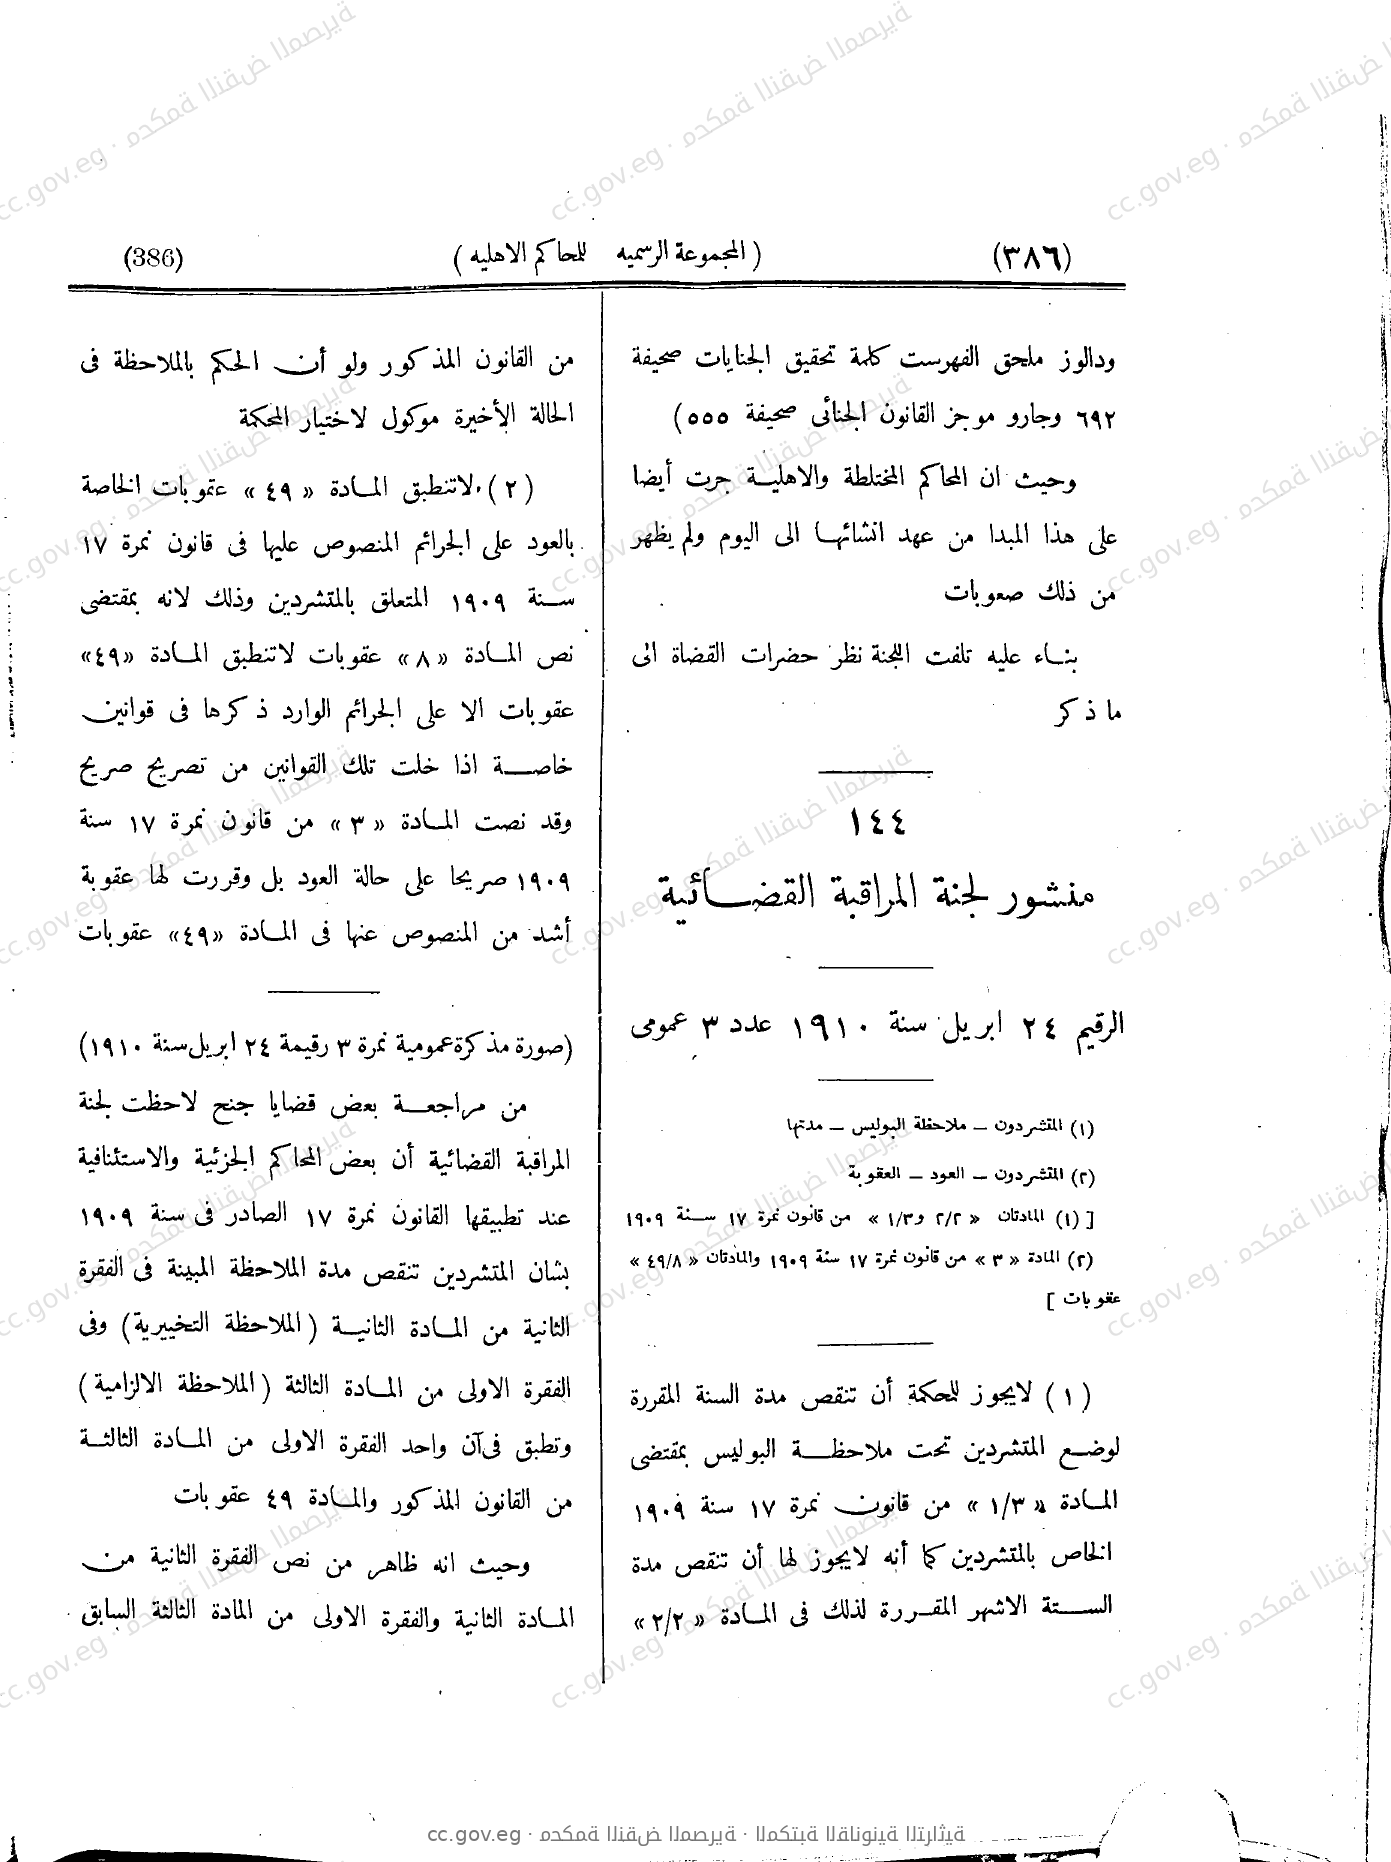 (٣٨٦)
( المجموعة الرسميه للمحاكم الاهليه )
(386)
ودالوز ملحق الفهرست كلمة تحقيق الجنايات صحيفة
٦٩٢ وجارو موجز القانون الجنائى صحيفة ٥٥٥)
وحيث ان المحاكم المختلطة والاهلية جرت أيضا
على هذا المبدا من عهد انشائها الى اليوم ولم يظهر
من ذلك صعوبات
بناء عليه تلفت اللجنة نظر حضرات القضاة الى
ما ذكر
١٤٤
منشور لجنة المراقبة القضائية
الرقيم ٢٤ ابريل سنة ١٩١٠ عدد ٣ عمومى
(١) المتشردون – ملاحظة البوليس – مدتها
(٢) المتشردون – العود – العقوبة
[ (١) المادتان « ٢/٢ و١/٣ » من قانون نمرة ١٧ سنة ١٩٠٩
(٢) المادة « ٣ » من قانون نمرة ١٧ سنة ١٩٠٩ والمادتان « ٤٩/٨ »
عقوبات ]
( ١ ) لايجوز للمحكمة أن تنقص مدة السنة المقررة
لوضع المتشردين تحت ملاحظة البوليس بمقتضى
المادة « ١/٣ » من قانون نمرة ١٧ سنة ١٩٠٩
الخاص بالمتشردين كما أنه لايجوز لها أن تنقص مدة
الستة الاشهر المقررة لذلك فى المادة « ٢/٢ »
من القانون المذكور ولو أن الحكم بالملاحظة فى
الحالة الأخيرة موكول لاختيار المحكمة
( ٢ ) لاتنطبق المادة « ٤٩ » عقوبات الخاصة
بالعود على الجرائم المنصوص عليها فى قانون نمرة ١٧
سنة ١٩٠٩ المتعلق بالمتشردين وذلك لانه بمقتضى
نص المادة « ٨ » عقوبات لاتنطبق المادة «٤٩»
عقوبات الا على الجرائم الوارد ذكرها فى قوانين
خاصة اذا خلت تلك القوانين من تصريح صريح
وقد نصت المادة « ٣ » من قانون نمرة ١٧ سنة
١٩٠٩ صريحا على حالة العود بل وقررت لها عقوبة
أشد من المنصوص عنها فى المادة «٤٩» عقوبات
(صورة مذكرة عمومية نمرة ٣ رقيمة ٢٤ ابريل سنة ١٩١٠)
من مراجعة بعض قضايا جنح لاحظت لجنة
المراقبة القضائية أن بعض المحاكم الجزئية والاستئنافية
عند تطبيقها القانون نمرة ١٧ الصادر فى سنة ١٩٠٩
بشان المتشردين تنقص مدة الملاحظة المبينة فى الفقرة
الثانية من المادة الثانية ( الملاحظة التخييرية ) وفى
الفقرة الاولى من المادة الثالثة ( الملاحظة الالزامية )
وتطبق فى آن واحد الفقرة الاولى من المادة الثالثة
من القانون المذكور والمادة ٤٩ عقوبات
وحيث انه ظاهر من نص الفقرة الثانية من
المادة الثانية والفقرة الاولى من المادة الثالثة السابق
cc.gov.eg · محكمة النقض المصرية · المكتبة القانونية التراثية